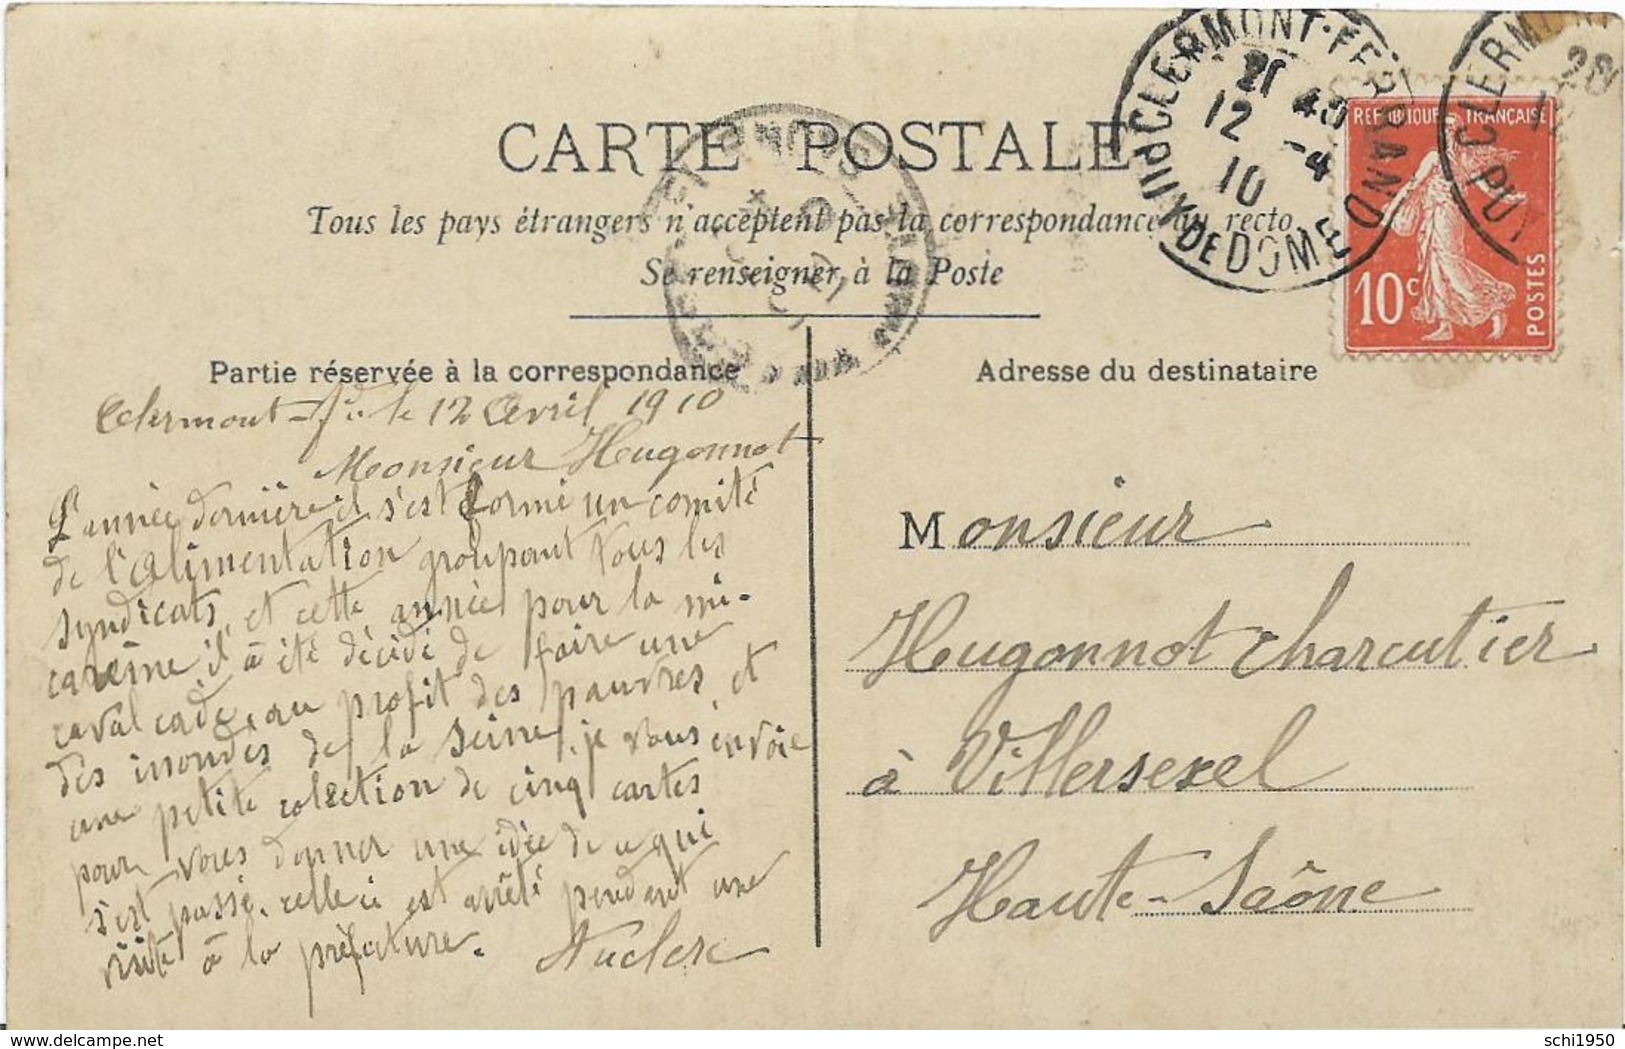 CARTE POSTALE
Tous les pays étrangers n'acceptent pas la correspondance au recto
Se renseigner à la Poste
CLERMONT-FERRAND
PUY DE DOME
21 45
12 -4
10
CLERMONT
28
PUY
REPUBLIQUE FRANÇAISE
10c
POSTES
Partie réservée à la correspondance
Clermont-fd. le 12 Avril 1910
Monsieur Hugonnot
L'année dernière il s'est formé un comité
de l'Alimentation groupant tous les
syndicats, et cette année pour la mi-
carême il à été décidé de faire une
cavalcade, au profit des pauvres et
des inondés de la Seine. je vous envoie
une petite colection de cinq cartes
pour vous donner une idée de ce qui
s'est passé. celle ci est arrêté pendant une
visite à la préfecture.
Adresse du destinataire
Monsieur
Hugonnot charcutier
à Villersexel
Haute-Saône
schi1950